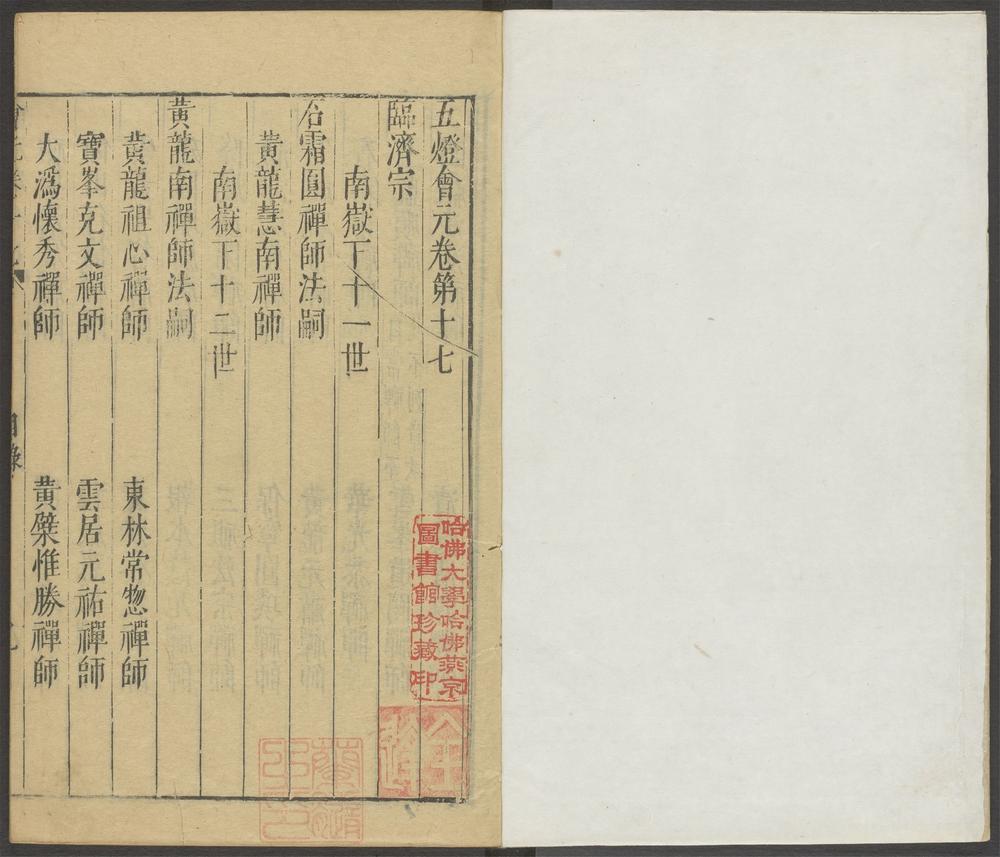 五燈會元卷第十七
臨濟宗
南嶽下十一世
石霜圓禪師法嗣
黃龍慧南禪師
南嶽下十二世
黃龍南禪師法嗣
黃龍祖心禪師 東林常惣禪師
寶峯克文禪師 雲居元祐禪師
大潙懷秀禪師 黃檗惟勝禪師
目錄
哈佛大學哈佛燕京
圖書館珍藏印